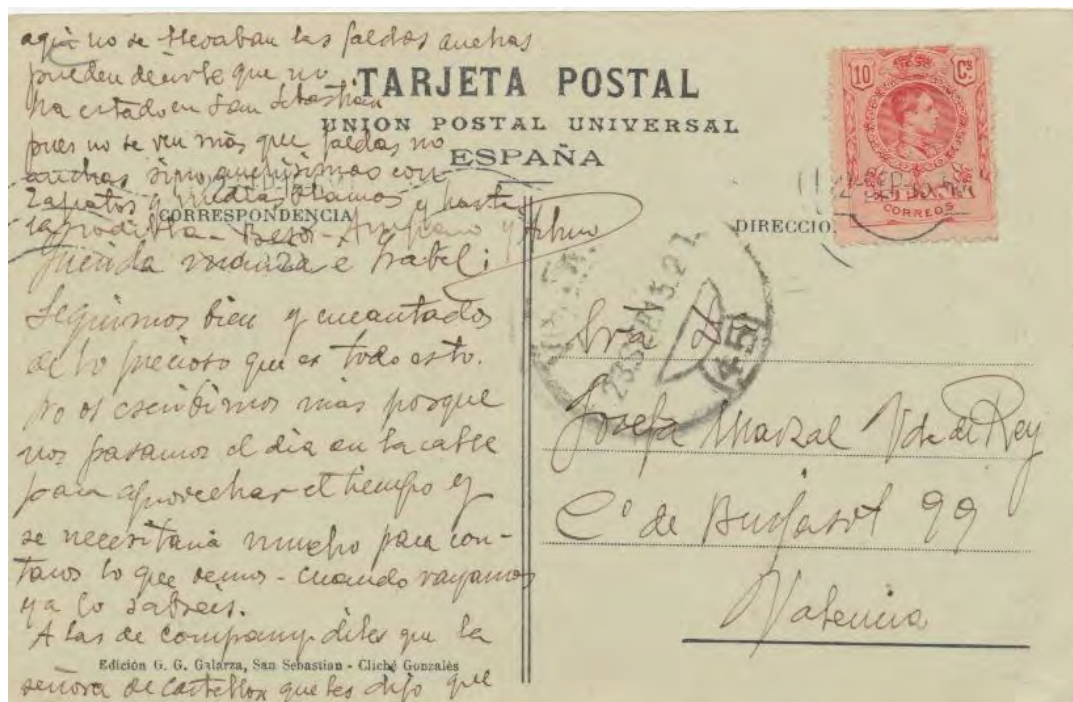 aqui no se llevaban las faldas anchas
pueden decirle que no
ha estado en San Sebastian
pues no se ven más que faldas no
anchas sino anchisimas con
zapatos y medias blancas y hasta
la rodilla - Besos - Amparo y Arturo
TARJETA POSTAL
UNION POSTAL UNIVERSAL
ESPAÑA
CORRESPONDENCIA
DIRECCIO
10 Cs.
CORREOS
Querida mamá e Isabel:
Seguimos bien y encantados
de lo precioso que es todo esto.
No os escribimos mas porque
nos pasamos el dia en la calle
para aprovechar el tiempo y
se necesitaria mucho para con-
taros lo que vemos - cuando vayamos
ya lo sabreis.
A las de Company diles que la
señora de Castellon que les dijo que
Edición G. G. Galarza, San Sebastian - Cliché Gonzalès
45
Sra Da
Josefa Marzal Vda de Rey
Co de Burjasot 99
Valencia